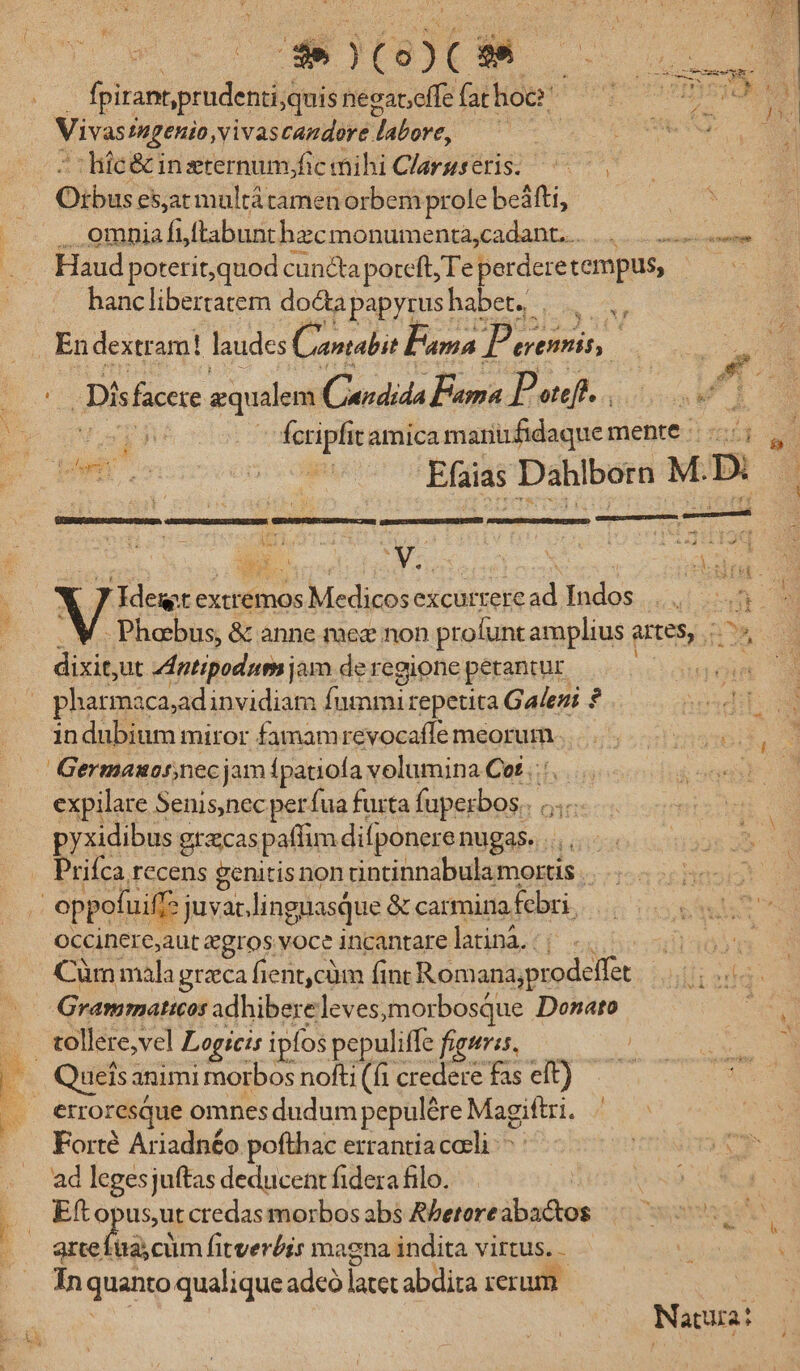 )(o)(
ſpirant,prudenti,quis negat,eſſe ſat hoc?
Vivas ingenio,vivas candore labore,
hîc & in æternum,ſic mihi Clarus eris.
Orbus es,at multâ tamen orbem prole beâſti,
omnia ſi,ſtabunt hæc monumenta,cadant.
Haud poterit,quod cuncta poteſt,Te perdere tempus,
hanc libertatem docta papyrus habet.
En dextram! laudes Cantabit Fama Perennis,
Dîs facere æqualem Candida Fama Poteſt.
ſcripſit amica manu fidaque mente
Eſaias Dahlborn M.D.
V.
VIderet extremos Medicos excurrere ad Indos
Phœbus, & anne meæ non proſunt amplius artes,
dixit,ut Antipodum jam de regione petantur
pharmaca,ad invidiam ſummi repetita Galeni ?
in dubium miror famam revocaſſe meorum
Germanos,nec jam ſpatioſa volumina Coi
expilare Senis,nec per ſua furta ſuperbos
pyxidibus græcas paſſim diſponere nugas.
Priſca recens genitis non tintinnabula mortis
oppoſuiſſe juvat,linguasque & carmina febri
occinere,aut ægros voce incantare latinâ.
Cùm mala græca fient,cùm ſint Romana,prodeſſet
Grammaticos adhibere leves,morbosque Donato
tollere,vel Logicis ipſos pepuliſſe figuris.
Queîs animi morbos noſti (ſi credere fas eſt)
erroresque omnes dudum pepulêre Magiſtri.
Fortè Ariadnéo poſthac errantia cœli
ad leges juſtas deducent ſidera filo.
Eſt opus,ut credas morbos abs Rhetore abactos
arte ſuâ,cùm ſit verbis magna indita virtus.
In quanto qualique adeò latet abdita rerum
Natura: